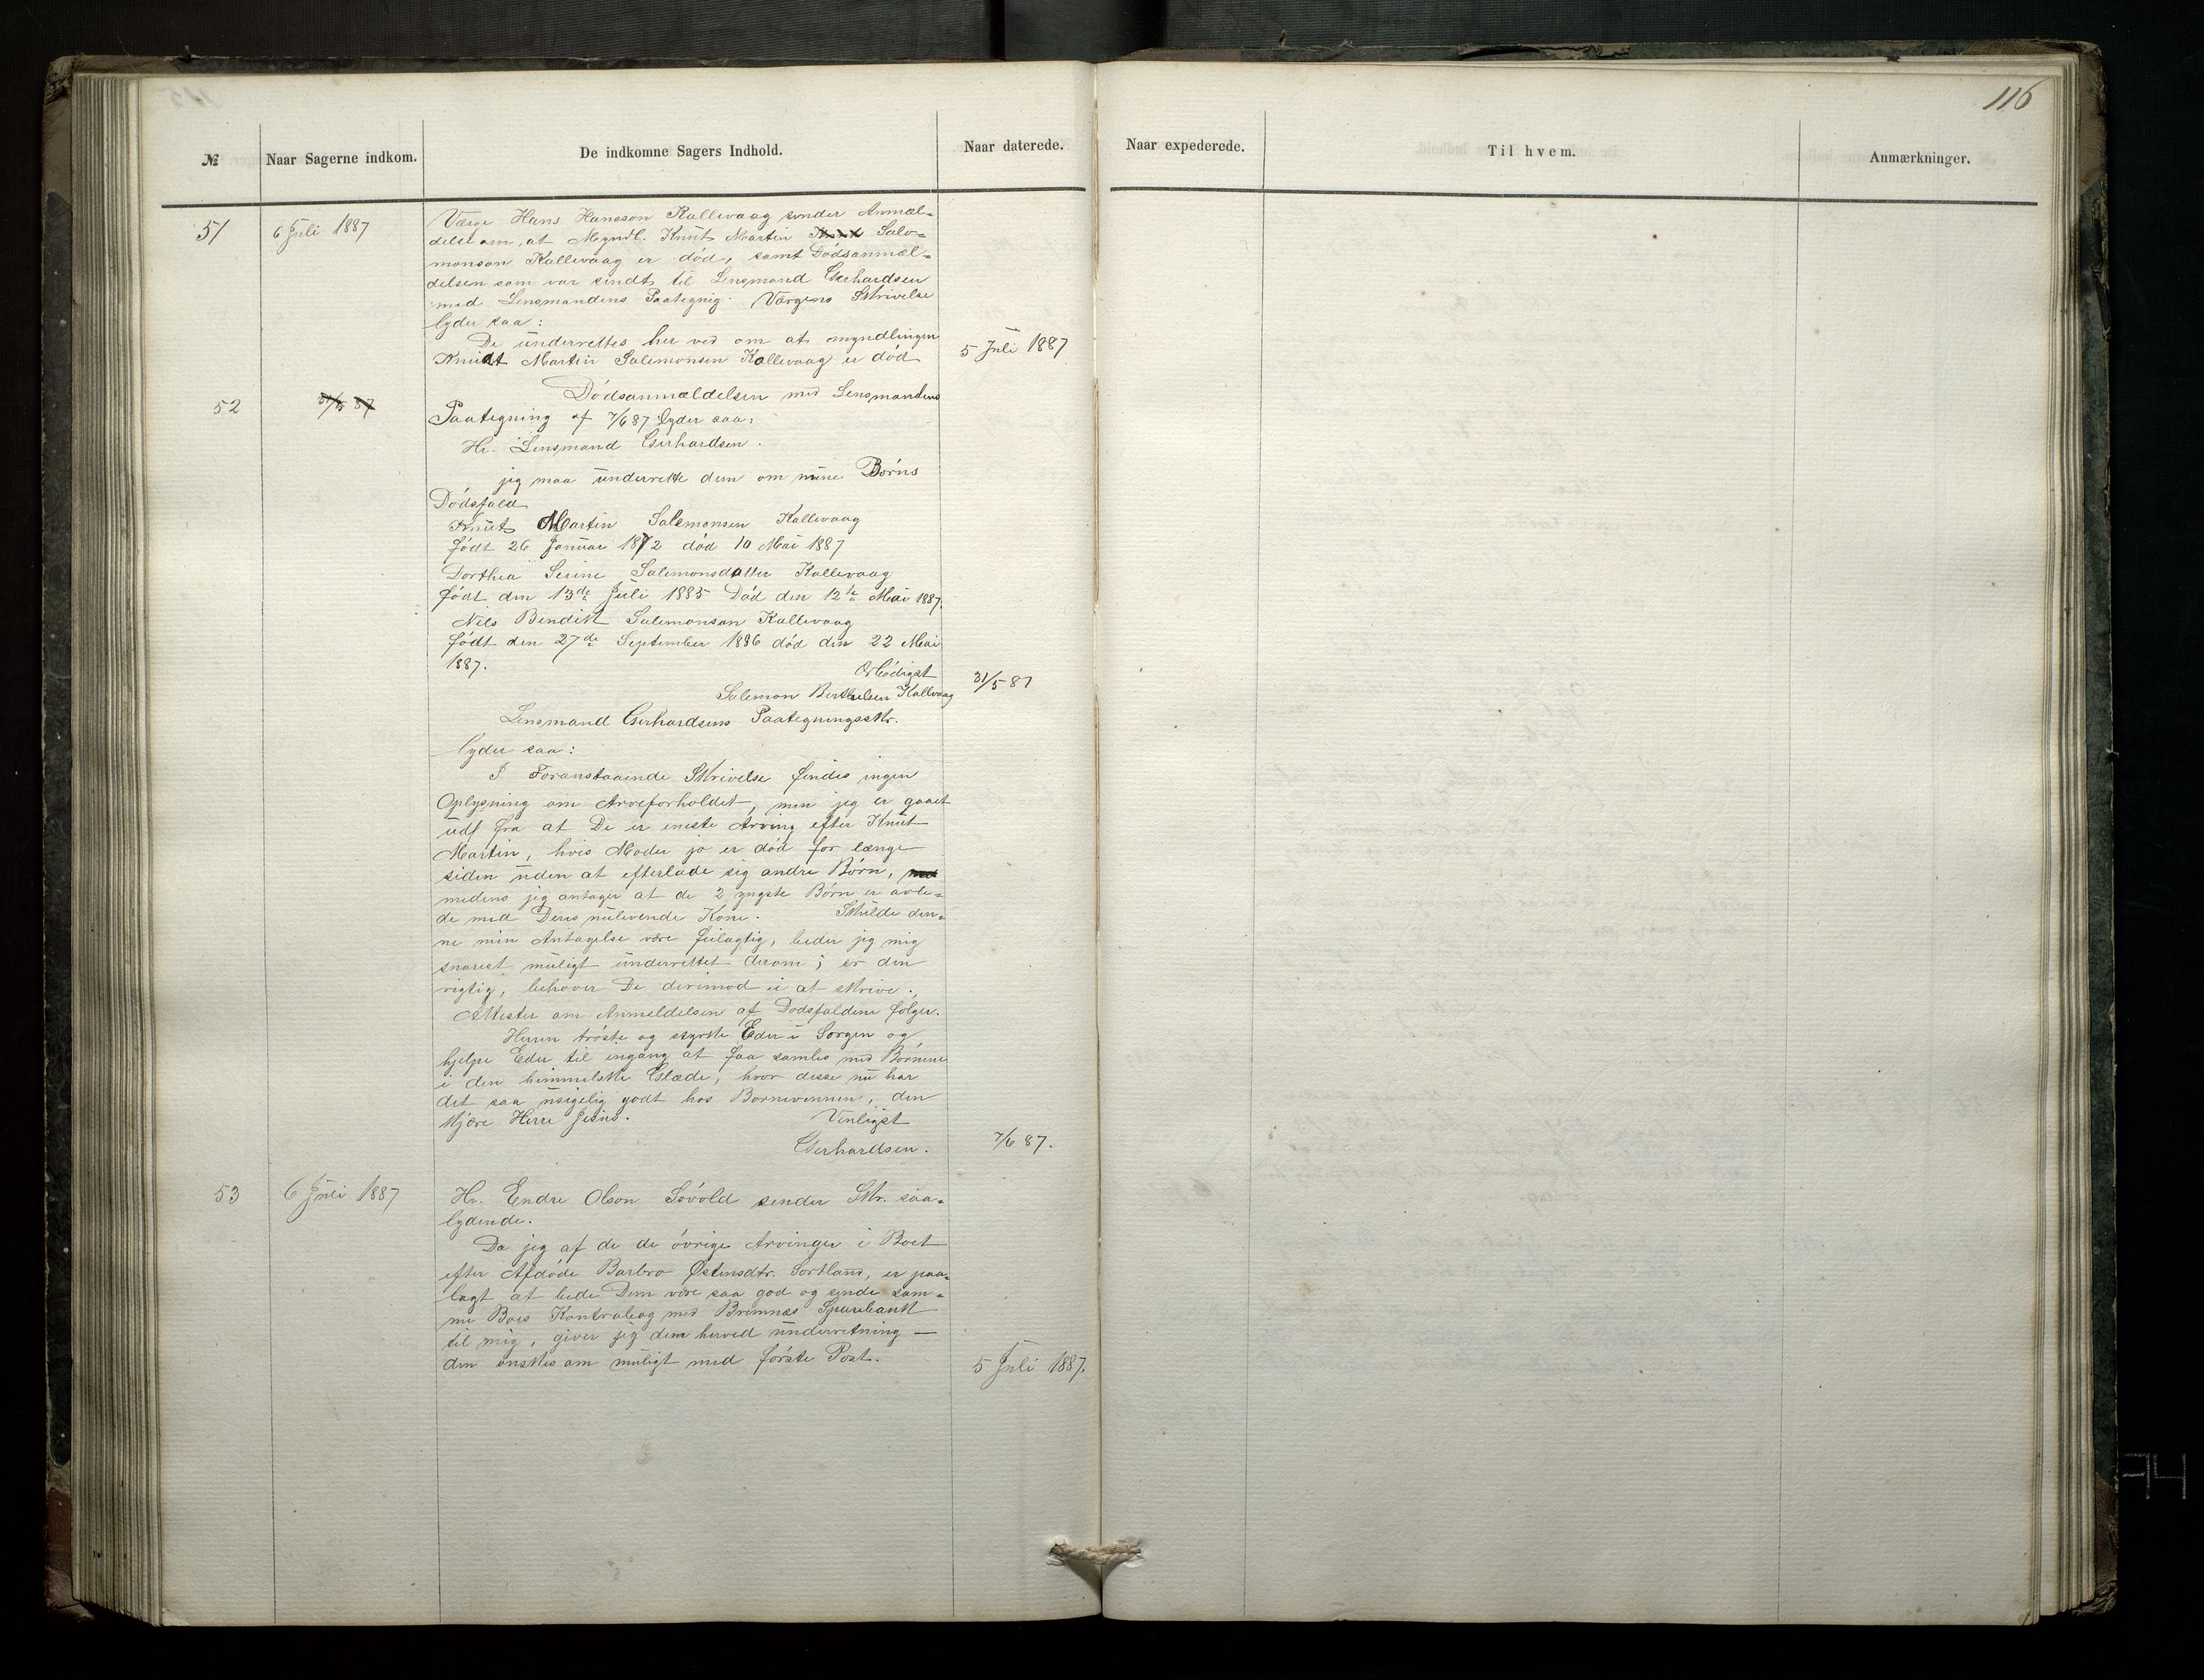 116
№ Naar Sagerne indkom. De indkomne Sagers Indhold. Naar daterede. Naar expederede. Til hvem. Anmærkninger.
51 6 Juli 1887 Værge Hans Hansson Kallevaag sender Anmæl-
delse om, at Myndl. Knut Martin Salo-
monson Kallevaag er død, samt Dødsanmæl-
delsen som var sendt til Lensmand Gerhardsen
med Lensmandens Paategnig. Værgens Skrivelse
lyder saa:
De underrettes her ved om at myndlingen
Knudt Martin Salemonsen Kallevaag er død 5 Juli 1887
52 31/5 87 Dødsanmældelsen med Lensmandens
Paategning af 7/6 87 lyder saa:
Hr. Lensmand Gerhardsen.
jeg maa underrette dem om mine Børns
Dødsfald
Knut Martin Salemonsen Kallevaag
født 26 Januar 1872 død 10 Mai 1887
Dorthea Serine Salemonsdatter Kallevaag
født den 13de Juli 1885 Død den 12te Mai 1887.
Nils Bendikt Salemonson Kallevaag
født den 27de September 1886 død den 22 Mai
1887.
Ødmødigst
Salemon Berthelsen Kallevaag 31/5 87
Lensmand Gerhardsens Paategningsskr.
lyder saa:
I Foranstaaende Skrivelse findes ingen
Oplysning om Arveforholdet, men jeg er gaaet
udf fra at De er eneste Arving efter Knut
Martin, hvis Moder jo er død for længe
siden uden at efterlade sig andre Børn,
medens jeg antager at de 2 yngste Børn er avle-
de med Deres nulevende Kone. Skulde den-
ne min Antagelse være feilagtig, beder jeg mig
snarest muligt underrettet derom; er den
rigtig, behøver De derimod ei at skrive.
Attester om Anmeldelsen af Dødsfaldene følger.
Herren trøste og styrke Eder i Sorgen og
hjelpe Eder til engang at faa samles med Børnene
i den himmelske Glæde, hvor disse nu har
det saa usigelig godt hos Børnevennen, den
kjære Herre Jesus. Venligst
Gerhardsen. 7/6 87.
53 6 Juli 1887 Hr. Endre Olson Søvold sender Skr. saa-
lydende.
Da jeg af de de øvrige Arvinger i Boet
efter Afdøde Barbro Østensdtr. Sortland, er paa-
lagt at bede Dem være saa god og sende sam-
me Boes Kontrabog med Bremnæs Sparebank
til mig, giver jeg dem herved underretning —
den ønskes om muligt med første Post. 5 Juli 1887.